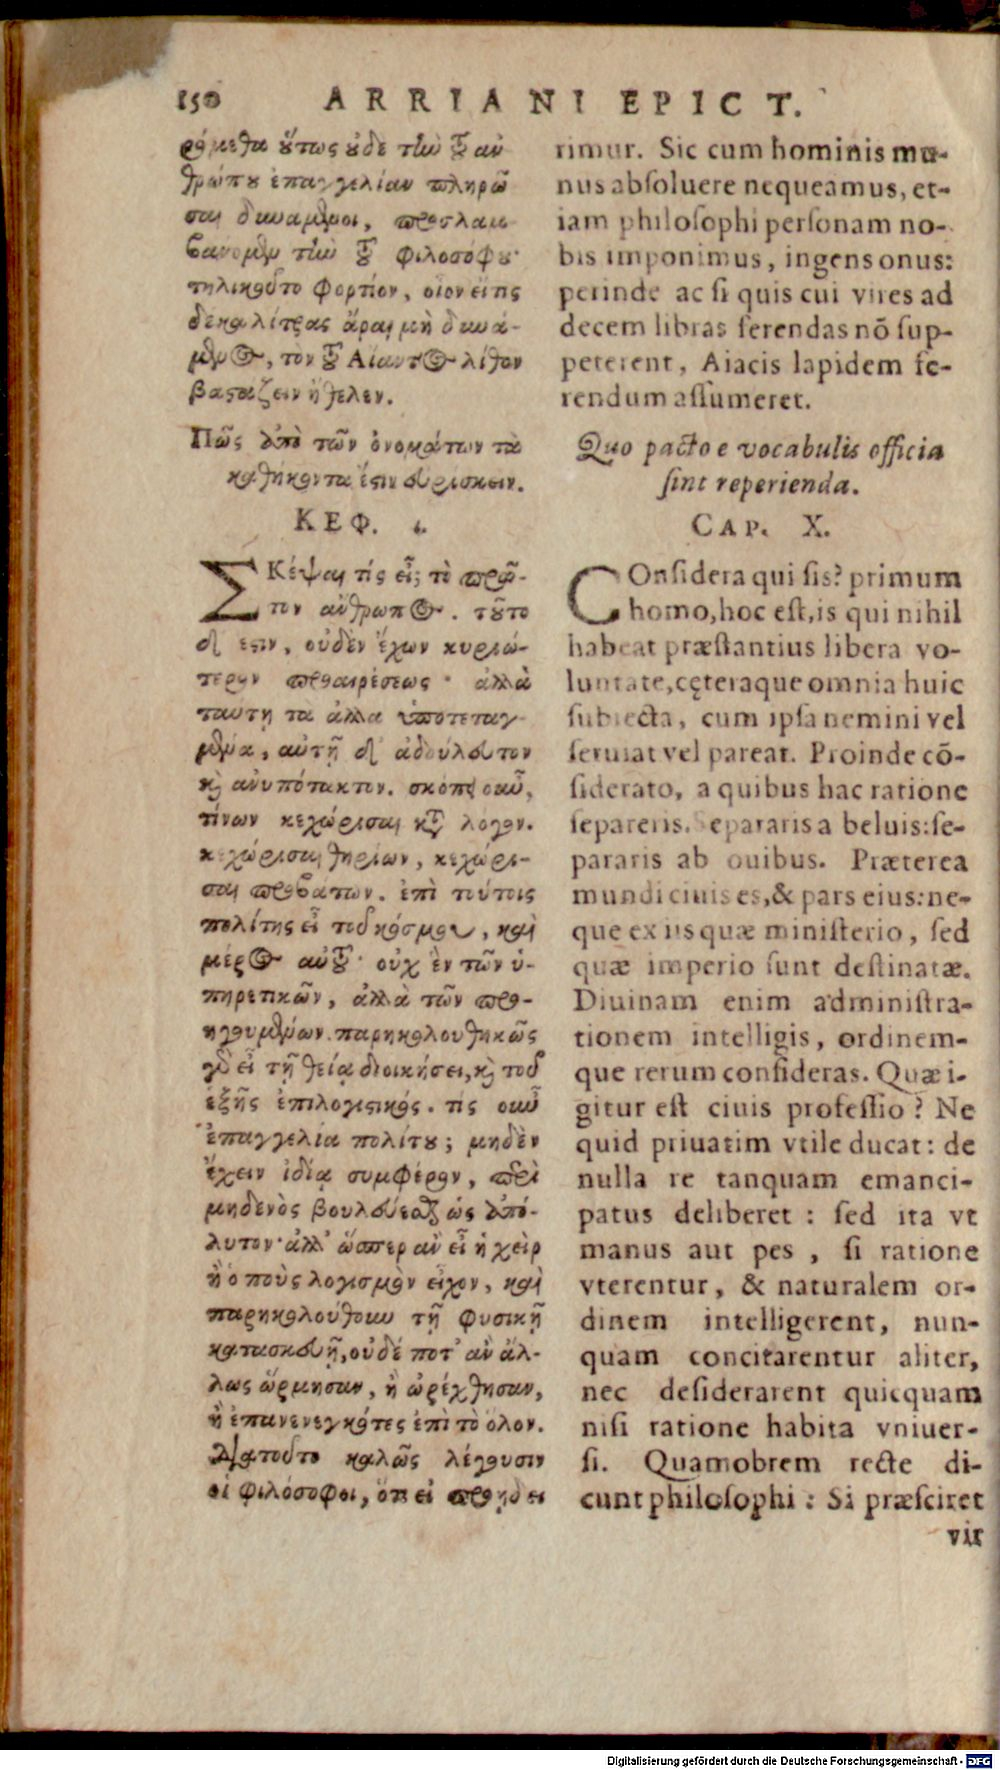 150 ARRIANI EPICT.
ρόμεθα οὕτως οὐδὲ τὴν τοῦ ἀν
θρώπου ἐπαγγελίαν πληρῶ
σαι δυνάμενοι, προσλαμ
βάνομεν τὴν τοῦ φιλοσόφου·
τηλικοῦτο φορτίον, οἷον εἴ τις
δέκα λίτρας ἆραι μὴ δυνά-
μενος, τὸν τοῦ Αἴαντος λίθον
βαστάζειν ἤθελεν.
Πῶς ἀπὸ τῶν ὀνομάτων τὰ
καθήκοντα ἔστιν εὑρίσκειν.
ΚΕΦ. ι.
ΣΚέψαι τίς εἶ; τὸ πρῶ-
τον ἄνθρωπος. τοῦτο
δ' ἔστιν, οὐδὲν ἔχων κυριώ-
τερον προαιρέσεως· ἀλλὰ
ταύτῃ τὰ ἄλλα ὑποτεταγ-
μένα, αὐτὴ δ' ἀδούλευτον
καὶ ἀνυπότακτον. σκόπει οὖν,
τίνων κεχώρισαι κατὰ λόγον.
κεχώρισαι θηρίων, κεχώρι-
σαι προβάτων. ἐπὶ τούτοις
πολίτης εἶ τοῦ κόσμου, καὶ
μέρος αὐτοῦ· οὐχ ἓν τῶν ὑ-
πηρετικῶν, ἀλλὰ τῶν προ-
ηγουμένων. παρηκολουθηκὼς
γὰρ εἶ τῇ θείᾳ διοικήσει, καὶ τοῦ
ἑξῆς ἐπιλογιστικός. τίς οὖν
ἐπαγγελία πολίτου; μηδὲν
ἔχειν ἰδίᾳ συμφέρον, περὶ
μηδενὸς βουλεύεσθαι ὡς ἀπό-
λυτον· ἀλλ' ὥσπερ ἂν εἰ ἡ χεὶρ
ἢ ὁ ποὺς λογισμὸν εἶχον, καὶ
παρηκολούθουν τῇ φυσικῇ
κατασκευῇ, οὐδέ ποτ' ἂν ἄλ-
λως ὥρμησαν, ἢ ὠρέχθησαν,
ἢ ἐπανενεγκότες ἐπὶ τὸ ὅλον.
Διὰ τοῦτο καλῶς λέγουσιν
οἱ φιλόσοφοι, ὅτι εἰ προῄδει
rimur. Sic cum hominis mu-
nus absoluere nequeamus, et-
iam philosophi personam no-
bis imponimus, ingens onus:
perinde ac si quis cui vires ad
decem libras ferendas nō sup-
peterent, Aiacis lapidem fe-
rendum assumeret.
Quo pacto e vocabulis officia
sint reperienda.
CAP. X.
COnsidera qui sis? primum
homo, hoc est, is qui nihil
habeat præstantius libera vo-
luntate, cęteraque omnia huic
subiecta, cum ipsa nemini vel
seruiat vel pareat. Proinde cō-
siderato, a quibus hac ratione
separeris. Separaris a beluis: se-
pararis ab ouibus. Præterea
mundi ciuis es, & pars eius: ne-
que ex iis quæ ministerio, sed
quæ imperio sunt destinatæ.
Diuinam enim administra-
tionem intelligis, ordinem-
que rerum consideras. Quæ i-
gitur est ciuis professio? Ne
quid priuatim vtile ducat: de
nulla re tanquam emanci-
patus deliberet: sed ita vt
manus aut pes, si ratione
vterentur, & naturalem or-
dinem intelligerent, nun-
quam concitarentur aliter,
nec desiderarent quicquam
nisi ratione habita vniuer-
si. Quamobrem recte di-
cunt philosophi: Si præsciret
vir
Digitalisierung gefördert durch die Deutsche Forschungsgemeinschaft - DFG